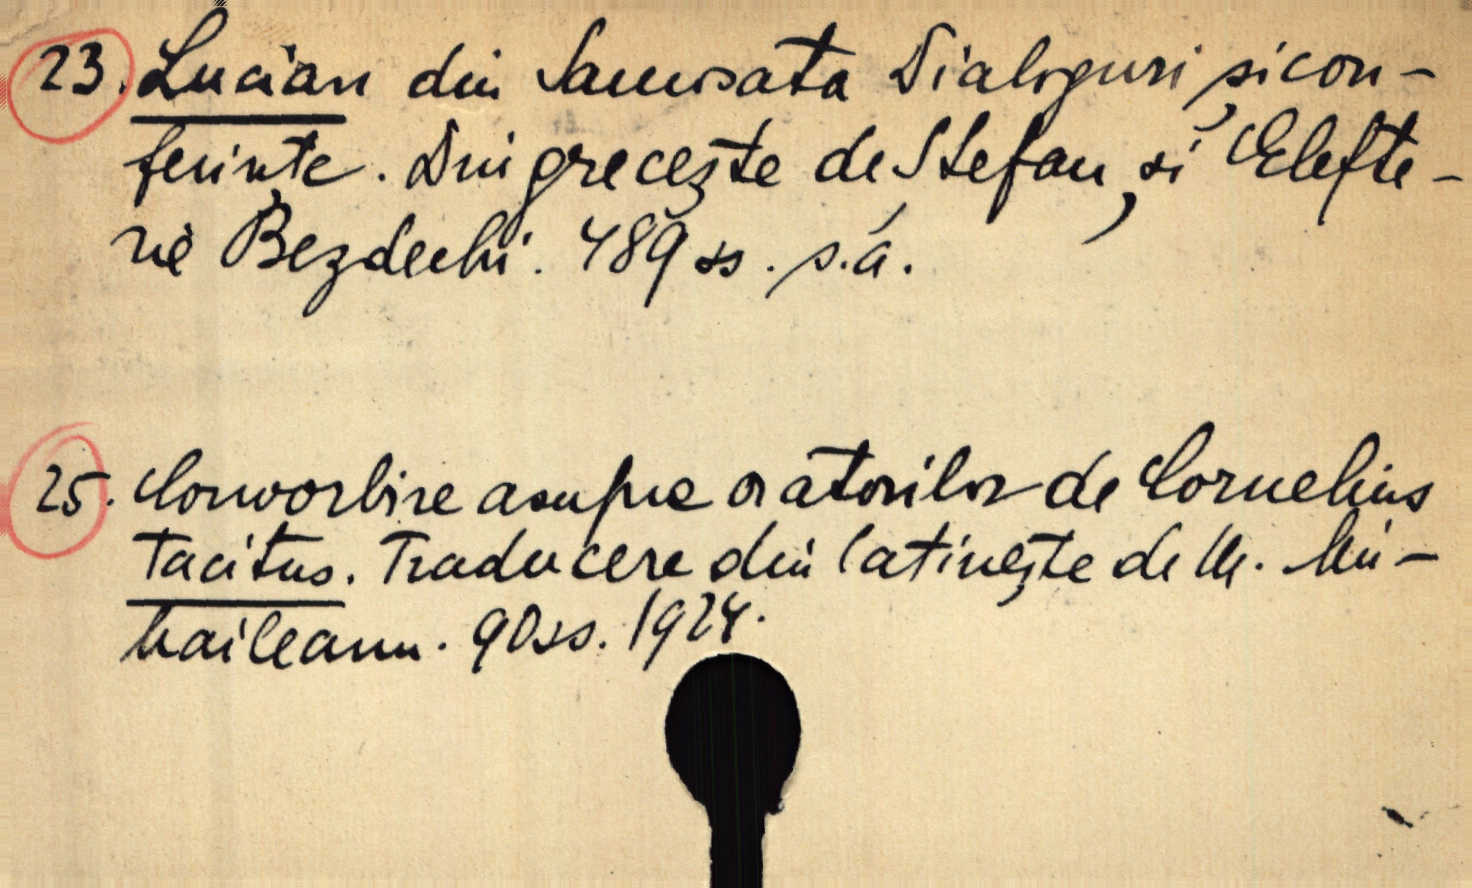 23. Lucian din Samosata Dialoguri și con-
ferințe. Din grecește de Stefan și Elefte-
rie Bezdechi. 489 ss. s.á.
25. Convorbire asupra oratorilor de Cornelius
Tacitus. Traducere din latinește de M. Mi-
haileanu. 90 ss. 1924.